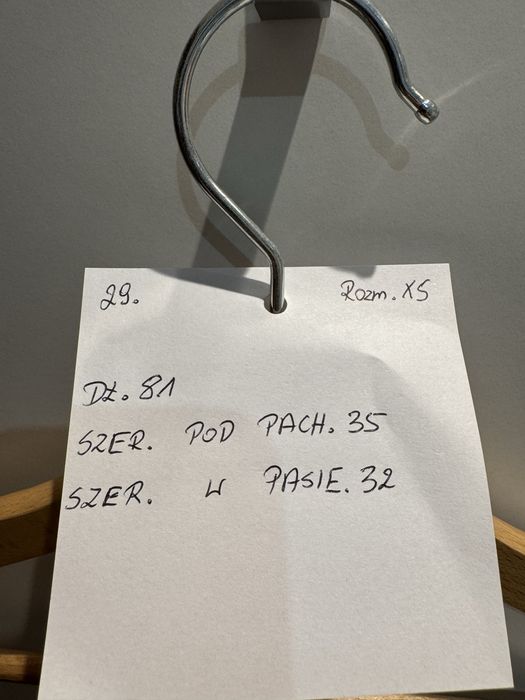 29. Rozm. XS
DŁ. 81
SZER. POD PACH. 35
SZER. W PASIE. 32